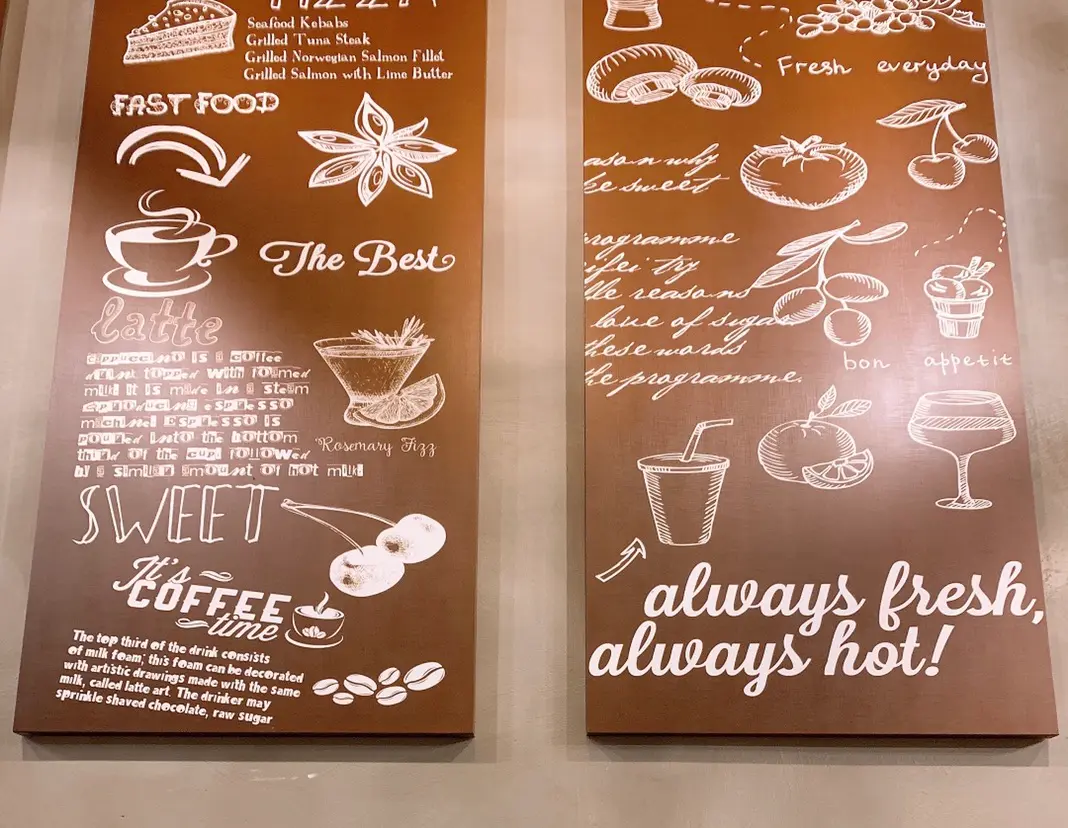 Seafood Kebabs
Grilled Tuna Steak
Grilled Norwegian Salmon Fillet
Grilled Salmon with Lime Butter
FAST FOOD
The Best
latte
cappuccino is a coffee
drink topped with foamed
milk It is made in a steam
producing espresso
machine Espresso is
poured into the bottom
third of the cup followed
by a similar amount of hot milk
Rosemary Fizz
SWEET
It's
COFFEE
time
The top third of the drink consists
of milk foam; this foam can be decorated
with artistic drawings made with the same
milk, called latte art. The drinker may
sprinkle shaved chocolate, raw sugar
Fresh everyday
why
sweet
programme
reasons
love of sugar
these words
the programme.
bon appetit
always fresh,
always hot!